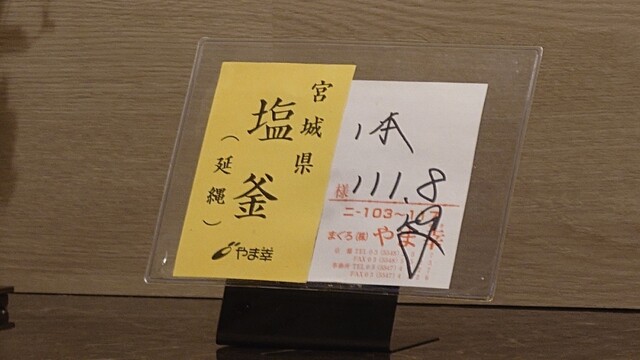 宮城県
塩釜
（延縄）
やま幸
1本
様 111.8
ニ-103〜
まぐろ(株)やま幸